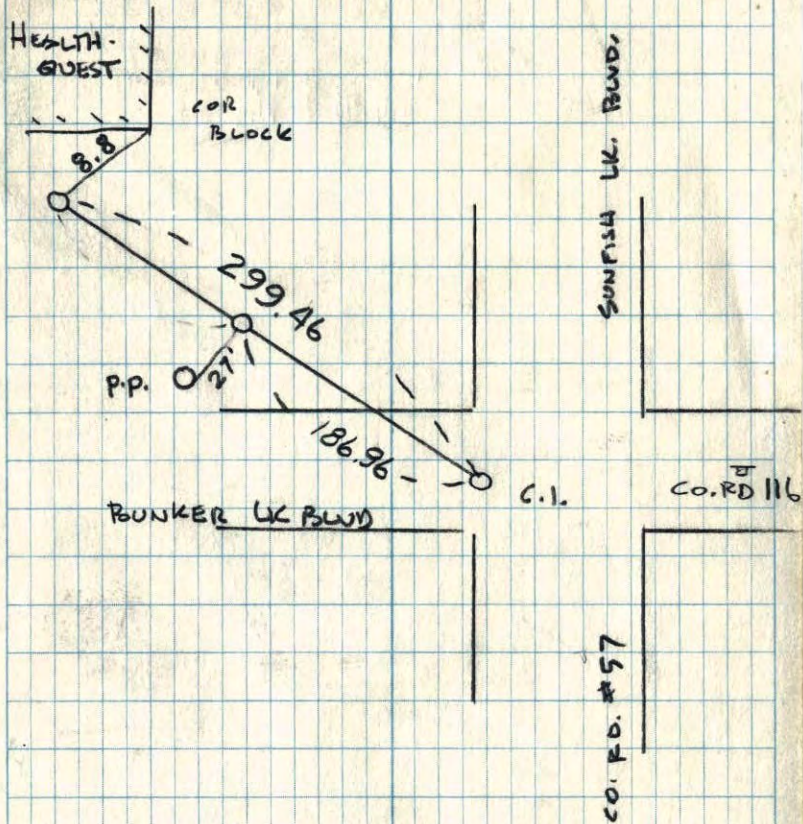 HEALTH-
QUEST
COR
BLOCK
8.8
299.46
P.P.
27'
186.96
C.I.
BUNKER LK BLVD
SUNFISH LK. BLVD.
CO. RD 116
CO. RD. #57